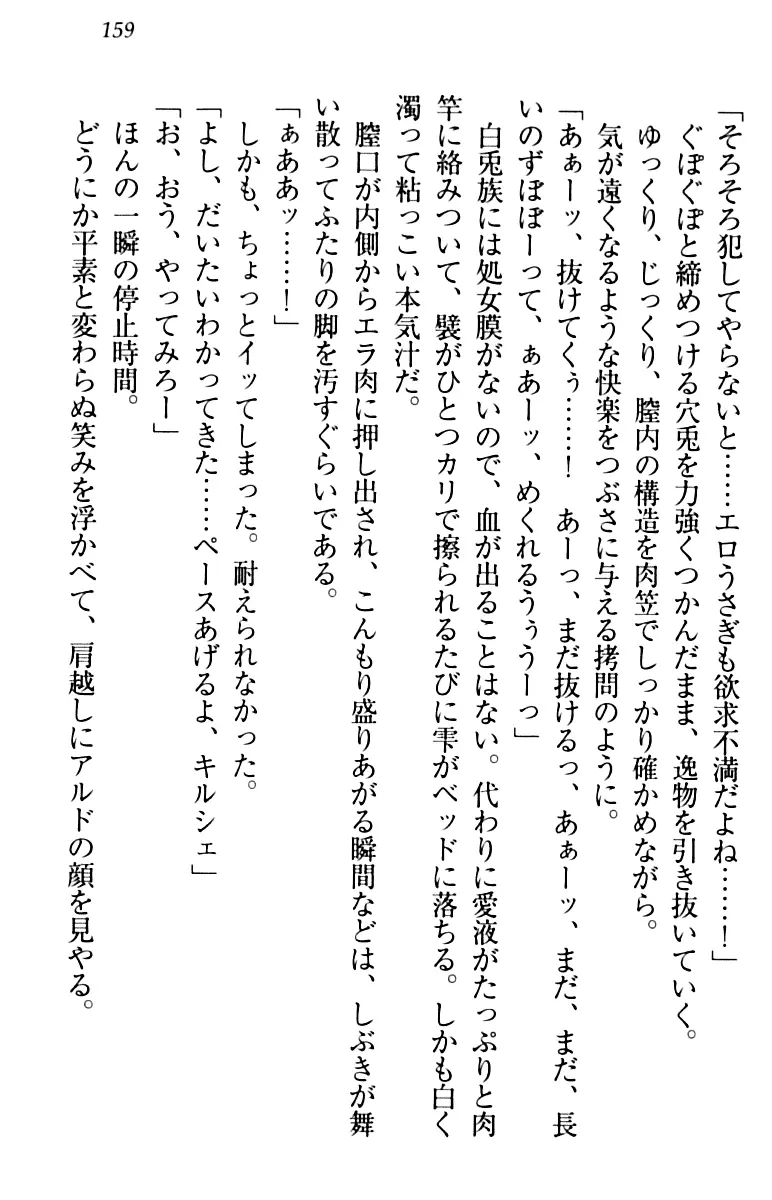 159
「そろそろ犯してやらないと……エロうさぎも欲求不満だよね……！」
ぐぽぐぽと締めつける穴兎を力強くつかんだまま、逸物を引き抜いていく。
ゆっくり、じっくり、膣内の構造を肉笠でしっかり確かめながら。
気が遠くなるような快楽をつぶさに与える拷問のように。
「あぁーッ、抜けてくぅ……！　あーっ、まだ抜けるっ、あぁーッ、まだ、まだ、長
いのずぽぽーって、ぁあーッ、めくれるうぅうーっ」
白兎族には処女膜がないので、血が出ることはない。代わりに愛液がたっぷりと肉
竿に絡みついて、襞がひとつカリで擦られるたびに雫がベッドに落ちる。しかも白く
濁って粘っこい本気汁だ。
膣口が内側からエラ肉に押し出され、こんもり盛りあがる瞬間などは、しぶきが舞
い散ってふたりの脚を汚すぐらいである。
「ぁああッ……！」
しかも、ちょっとイッてしまった。耐えられなかった。
「よし、だいたいわかってきた……ペースあげるよ、キルシェ」
「お、おう、やってみろー」
ほんの一瞬の停止時間。
どうにか平素と変わらぬ笑みを浮かべて、肩越しにアルドの顔を見やる。